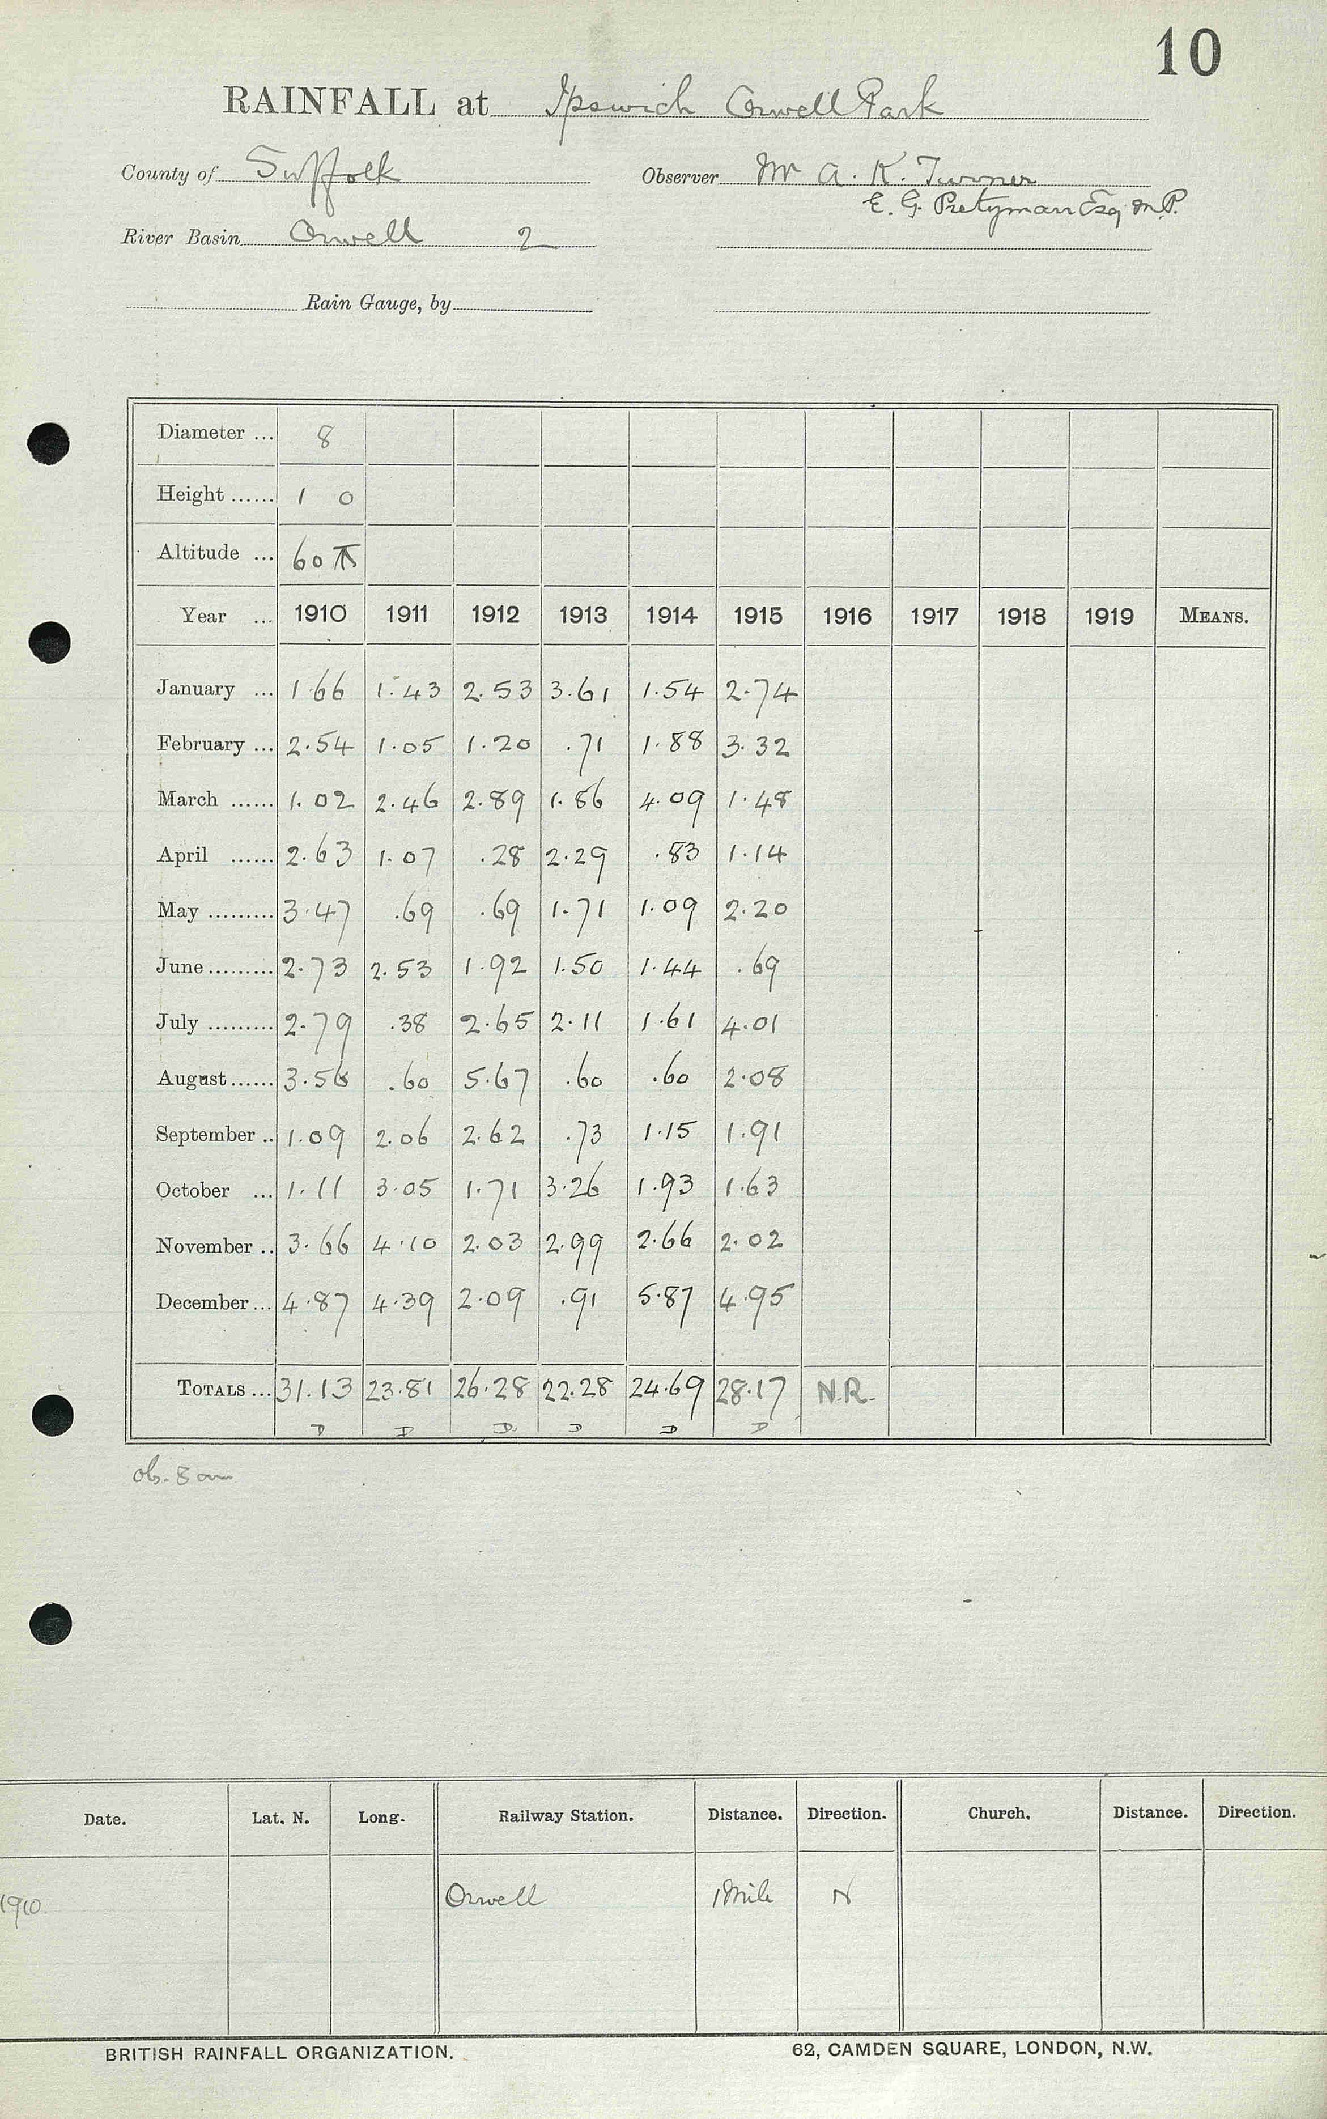 10
RAINFALL at Ipswich Orwell Park
County of Suffolk Observer Mr A. K. Turner
E. G. Pretyman Esq M.P.
River Basin Orwell 2
Rain Gauge, by
Diameter ... 8
Height ...... 1 0
Altitude ... 60
Year ... 1910 1911 1912 1913 1914 1915 1916 1917 1918 1919 MEANS.
January ... 1.66 1.43 2.53 3.61 1.54 2.74
February ... 2.54 1.05 1.20 .71 1.88 3.32
March ...... 1.02 2.46 2.89 1.86 4.09 1.48
April ...... 2.63 1.07 .28 2.29 .83 1.14
May ......... 3.47 .69 .69 1.71 1.09 2.20
June ......... 2.73 2.53 1.92 1.50 1.44 .69
July ......... 2.79 .38 2.65 2.11 1.61 4.01
August ...... 3.56 .60 5.67 .60 .60 2.08
September .. 1.09 2.06 2.62 .73 1.15 1.91
October ... 1.11 3.05 1.71 3.26 1.93 1.63
November .. 3.66 4.10 2.03 2.99 2.66 2.02
December ... 4.87 4.39 2.09 .91 5.87 4.95
TOTALS ... 31.13 23.81 26.28 22.28 24.69 28.17 N.R.
D D D D D D
ob. 8 am
Date. Lat. N. Long. Railway Station. Distance. Direction. Church. Distance. Direction.
1910 Orwell 1 Mile N
BRITISH RAINFALL ORGANIZATION. 62, CAMDEN SQUARE, LONDON, N.W.